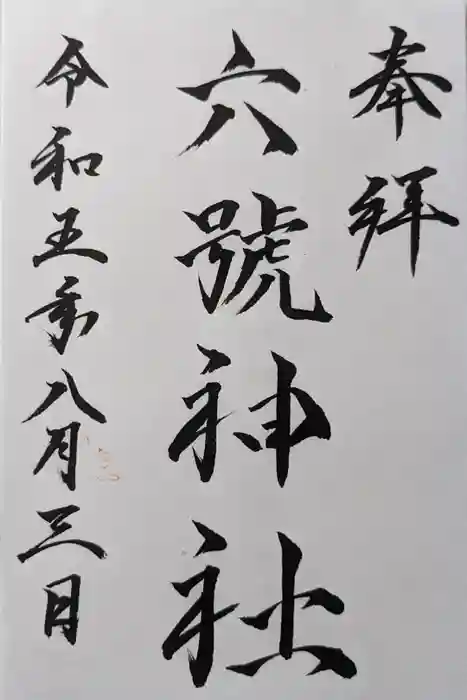 奉拝
六號神社
令和五年八月三日